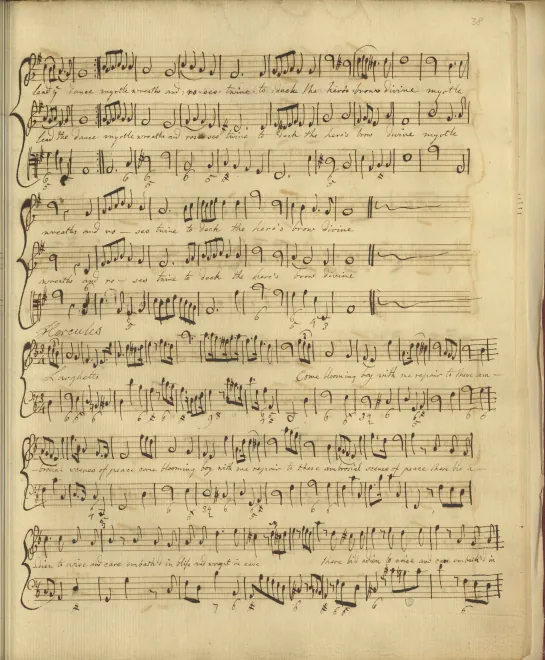 38
lead ye dance myrtle wreaths and roses twine to deck the hero's brow divine myrtle
lead the dance myrtle wreaths and roses twine to deck the hero's brow divine myrtle
wreaths and ro - ses twine to deck the hero's brow divine
wreaths and ro - ses twine to deck the hero's brow divine
Hercules
Larghetto
Come blooming boy with me repair to these am -
-brosial scenes of peace come blooming boy with me repair to these ambrosial scenes of peace there bid a -
-dieu to noise and care embath'd in bliss and wrapt in ease there bid adieu to noise and care embath'd in